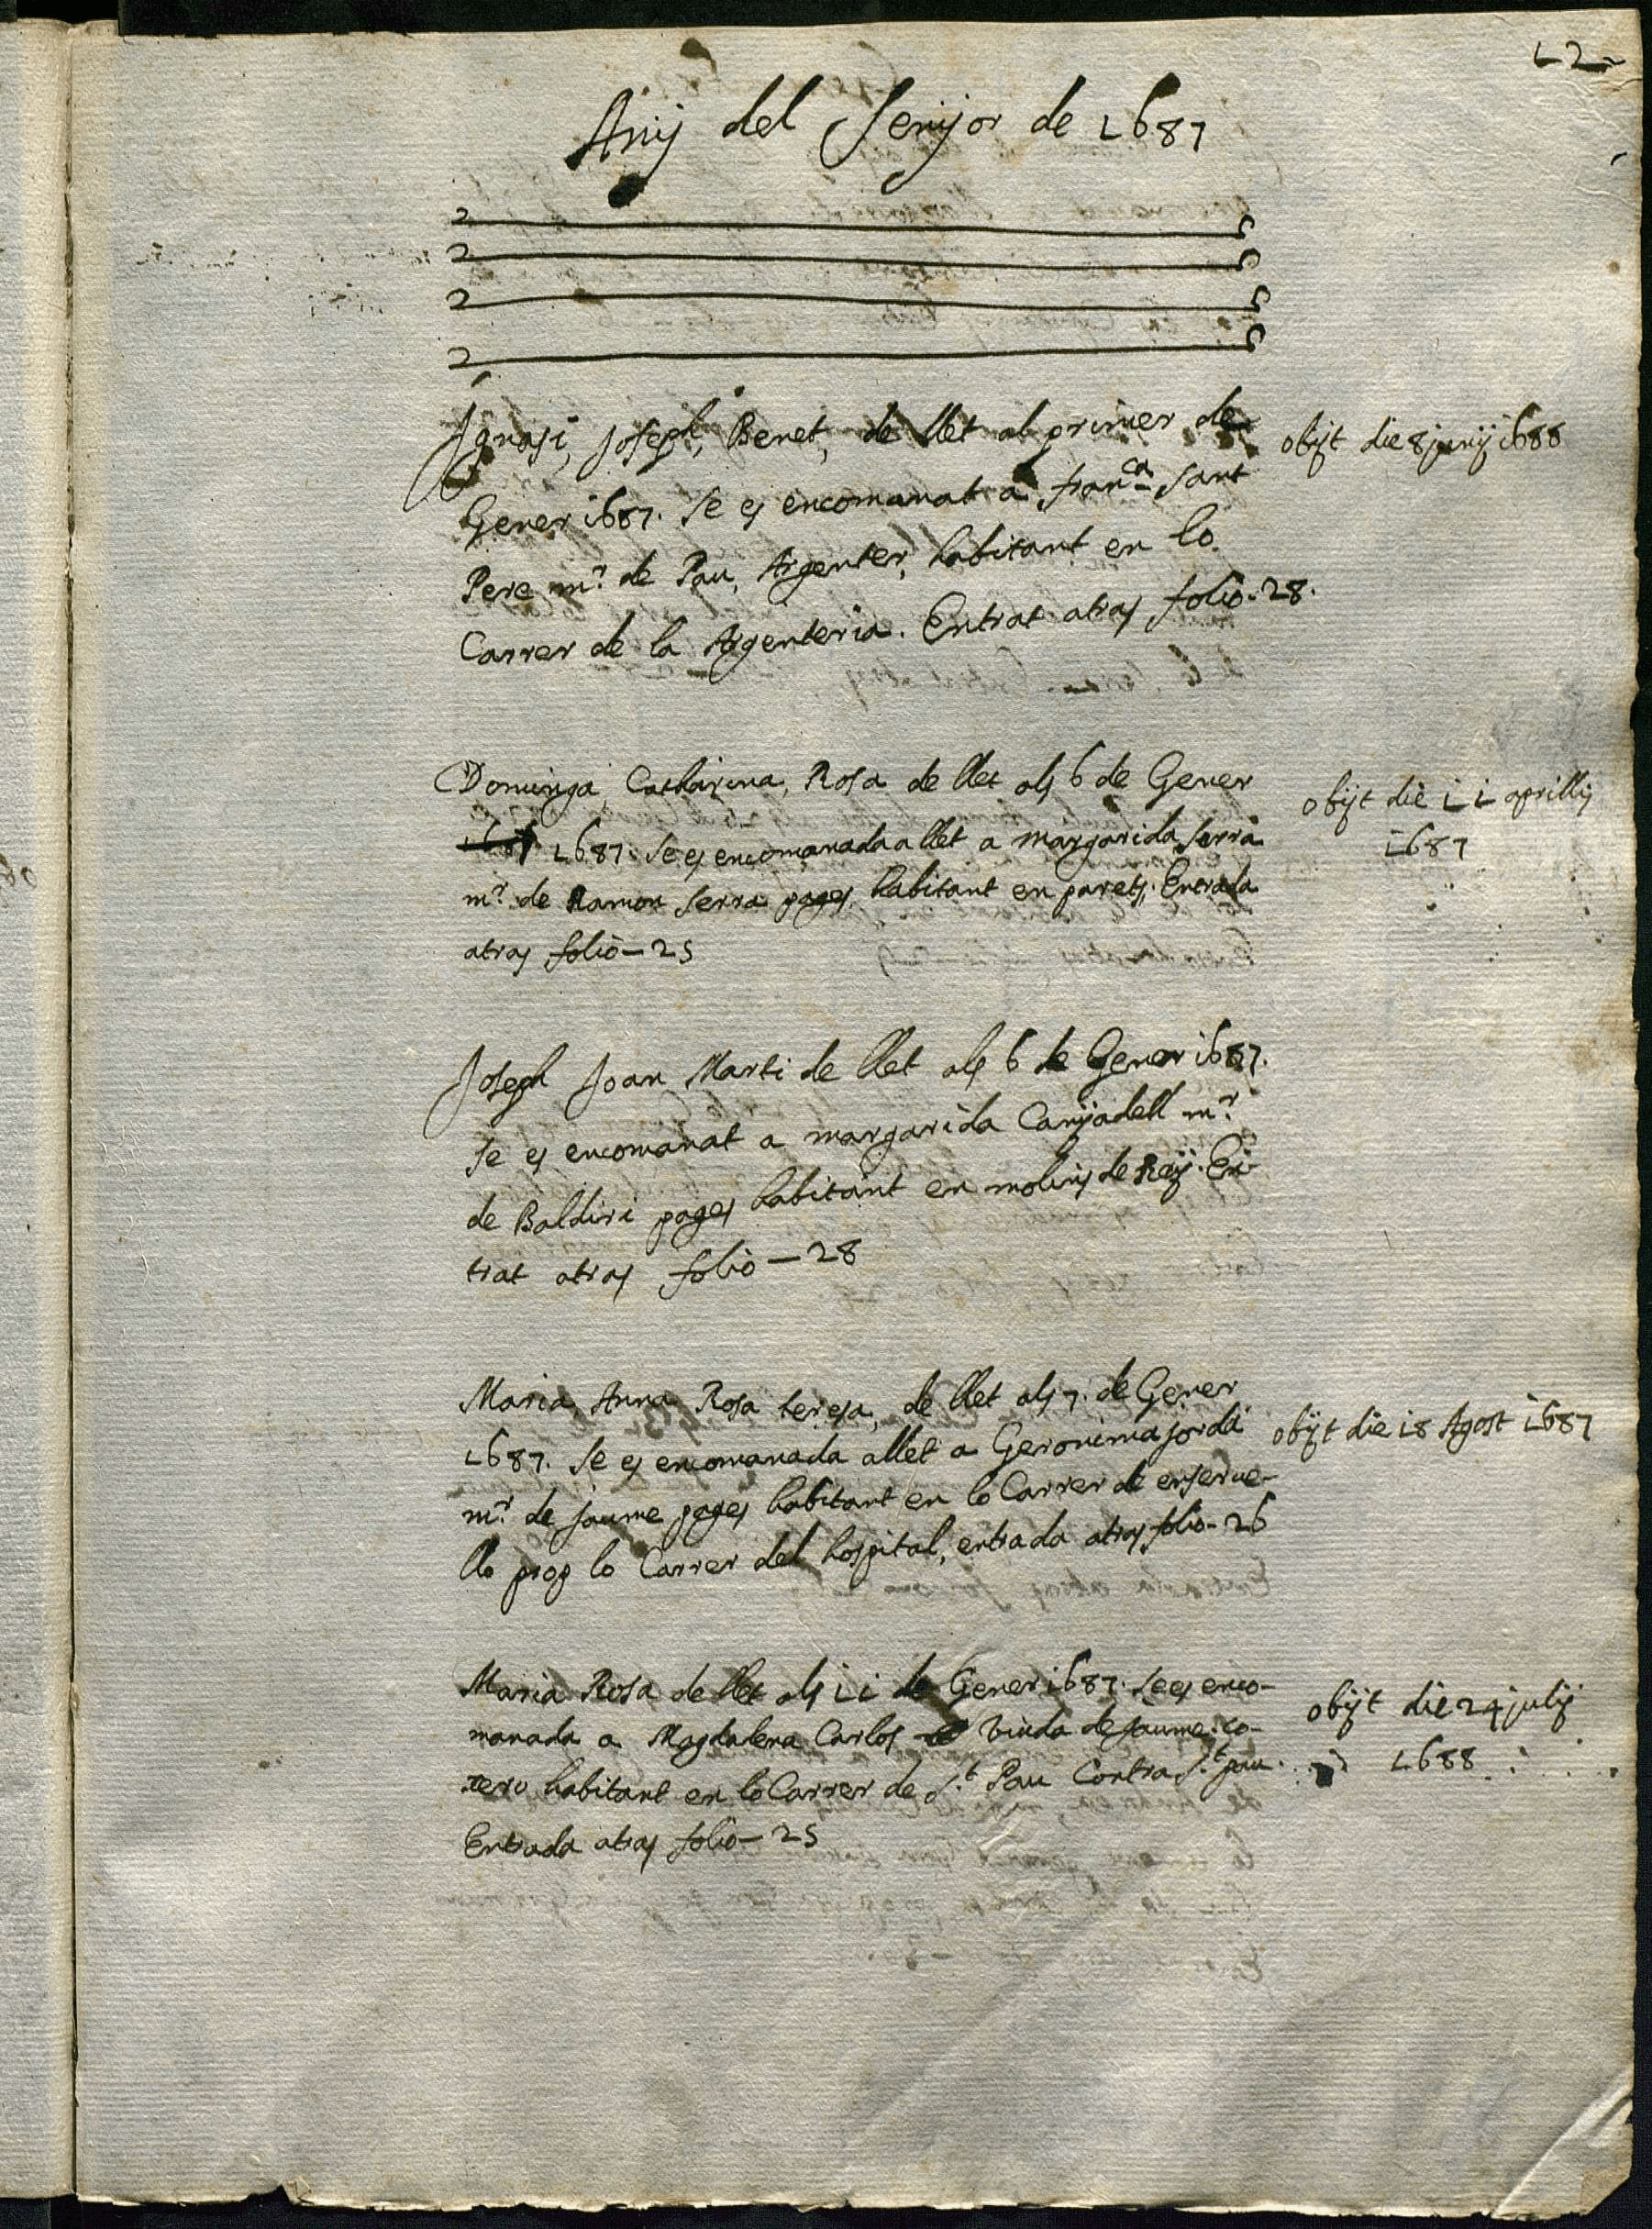 12
Anij del Senijor de 1687
Ignasi, Joseph, Benet, de llet al primer de
Gener 1687. Se es encomanat a franca Sant
Pere mr. de Pau, Argenter, habitant en lo
Carrer de la Argenteria. Entrat atras folio-28.
obijt die 8 junij 1688
Dominga, Catharina, Rosa de llet als 6 de Gener
1687 1687. Se es encomanada a llet a margarida serra
mr. de Ramon Serra pages, habitant en parets. Entrada
atras folio-25
obijt die 11 aprillis
1687
Joseph Joan Marti de llet als 6 de Gener 1687.
Se es encomanat a margarida Canijadell mr.
de Baldiri pages habitant en molins de Reij. En-
trat atras folio-28
Maria Anna Rosa teresa, de llet als 7. de Gener
1687. Se es encomanada a llet a Geronima Jorda
mr. de Jaume pages habitant en lo Carrer de enserve-
llo prop lo Carrer del hospital, entrada atras folio-26
obijt die 18 Agost 1687
Maria Rosa de llet als 11 de Gener 1687. Se es enco-
manada a Magdalena Carlos viuda de Jaume co-
xero habitant en lo Carrer de St. Pau Contra St. pau.
Entrada atras folio-25
obijt die 24 julij
1688